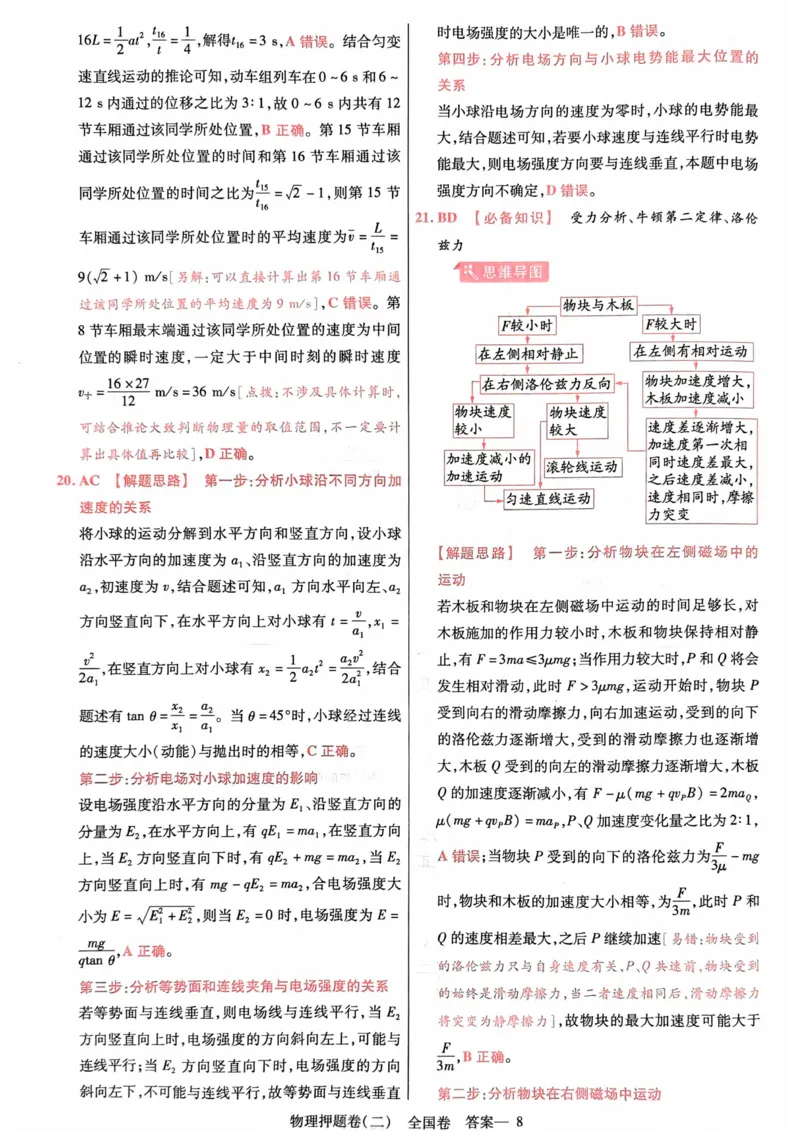 16L=½at²,t₁₆/t=1/4,解得t₁₆=3 s,A错误。结合匀变
速直线运动的推论可知,动车组列车在0~6 s和6~
12 s内通过的位移之比为3:1,故0~6 s内共有12
节车厢通过该同学所处位置,B正确。第15节车厢
通过该同学所处位置的时间和第16节车厢通过该
同学所处位置的时间之比为t₁₅/t₁₆=√2-1,则第15节
车厢通过该同学所处位置时的平均速度为v̄=L/t₁₅=
9(√2+1) m/s[另解:可以直接计算出第16节车厢通
过该同学所处位置的平均速度为9 m/s],C错误。第
8节车厢最末端通过该同学所处位置的速度为中间
位置的瞬时速度,一定大于中间时刻的瞬时速度
v中=16×27/12 m/s=36 m/s[点拨:不涉及具体计算时,
可结合推论大致判断物理量的取值范围,不一定要计
算出具体值再比较],D正确。
20.AC 【解题思路】 第一步:分析小球沿不同方向加
速度的关系
将小球的运动分解到水平方向和竖直方向,设小球
沿水平方向的加速度为a₁、沿竖直方向的加速度为
a₂,初速度为v,结合题述可知,a₁方向水平向左、a₂
方向竖直向下,在水平方向上对小球有t=v/a₁,x₁=
v²/2a₁,在竖直方向上对小球有x₂=½a₂t²=a₂v²/2a₁²,结合
题述有tan θ=x₂/x₁=a₂/a₁。当θ=45°时,小球经过连线
的速度大小(动能)与抛出时的相等,C正确。
第二步:分析电场对小球加速度的影响
设电场强度沿水平方向的分量为E₁、沿竖直方向的
分量为E₂,在水平方向上,有qE₁=ma₁,在竖直方向
上,当E₂方向竖直向下时,有qE₂+mg=ma₂,当E₂
方向竖直向上时,有mg-qE₂=ma₂,合电场强度大
小为E=√(E₁²+E₂²),则当E₂=0时,电场强度为E=
mg/qtan θ,A正确。
第三步:分析等势面和连线夹角与电场强度的关系
若等势面与连线垂直,则电场线与连线平行,当E₂
方向竖直向上时,电场强度的方向斜向左上,可能与
连线平行;当E₂方向竖直向下时,电场强度的方向
斜向左下,不可能与连线平行,故等势面与连线垂直
时电场强度的大小是唯一的,B错误。
第四步:分析电场方向与小球电势能最大位置的
关系
当小球沿电场方向的速度为零时,小球的电势能最
大,结合题述可知,若要小球速度与连线平行时电势
能最大,则电场强度方向要与连线垂直,本题中电场
强度方向不确定,D错误。
21.BD 【必备知识】 受力分析、牛顿第二定律、洛伦
兹力
思维导图
物块与木板
F较小时
F较大时
在左侧相对静止
在左侧有相对运动
在右侧洛伦兹力反向
物块加速度增大,
木板加速度减小
物块速度
较小
物块速度
较大
速度差逐渐增大,
加速度第一次相
同时速度差最大,
之后速度差减小,
速度相同时,摩擦
力突变
加速度减小的
加速运动
滚轮线运动
匀速直线运动
【解题思路】 第一步:分析物块在左侧磁场中的
运动
若木板和物块在左侧磁场中运动的时间足够长,对
木板施加的作用力较小时,木板和物块保持相对静
止,有F=3ma≤3μmg;当作用力较大时,P和Q将会
发生相对滑动,此时F>3μmg,运动开始时,物块P
受到向右的滑动摩擦力,向右加速运动,受到的向下
的洛伦兹力逐渐增大,受到的滑动摩擦力也逐渐增
大,木板Q受到的向左的滑动摩擦力逐渐增大,木板
Q的加速度逐渐减小,有F-μ(mg+qvPB)=2maQ,
μ(mg+qvPB)=maP,P、Q加速度变化量之比为2:1,
A错误;当物块P受到的向下的洛伦兹力为F/3μ-mg
时,物块和木板的加速度大小相等,为F/3m,此时P和
Q的速度相差最大,之后P继续加速[易错:物块受到
的洛伦兹力只与自身速度有关,P、Q共速前,物块受到
的始终是滑动摩擦力,当二者速度相同后,滑动摩擦力
将突变为静摩擦力],故物块的最大加速度可能大于
F/3m,B正确。
第二步:分析物块在右侧磁场中运动
物理押题卷(二) 全国卷 答案— 8